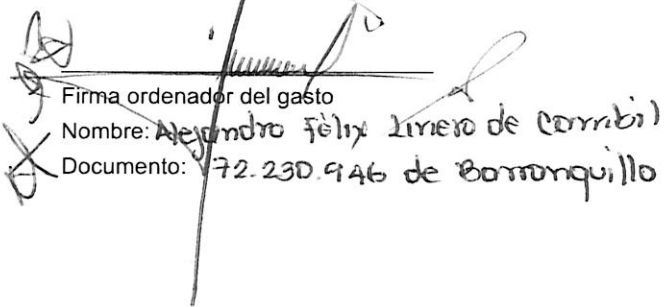 Firma ordenador del gasto
Nombre: Alejandro Félix Liñero de Cambil
Documento: 72.230.946 de Barranquilla